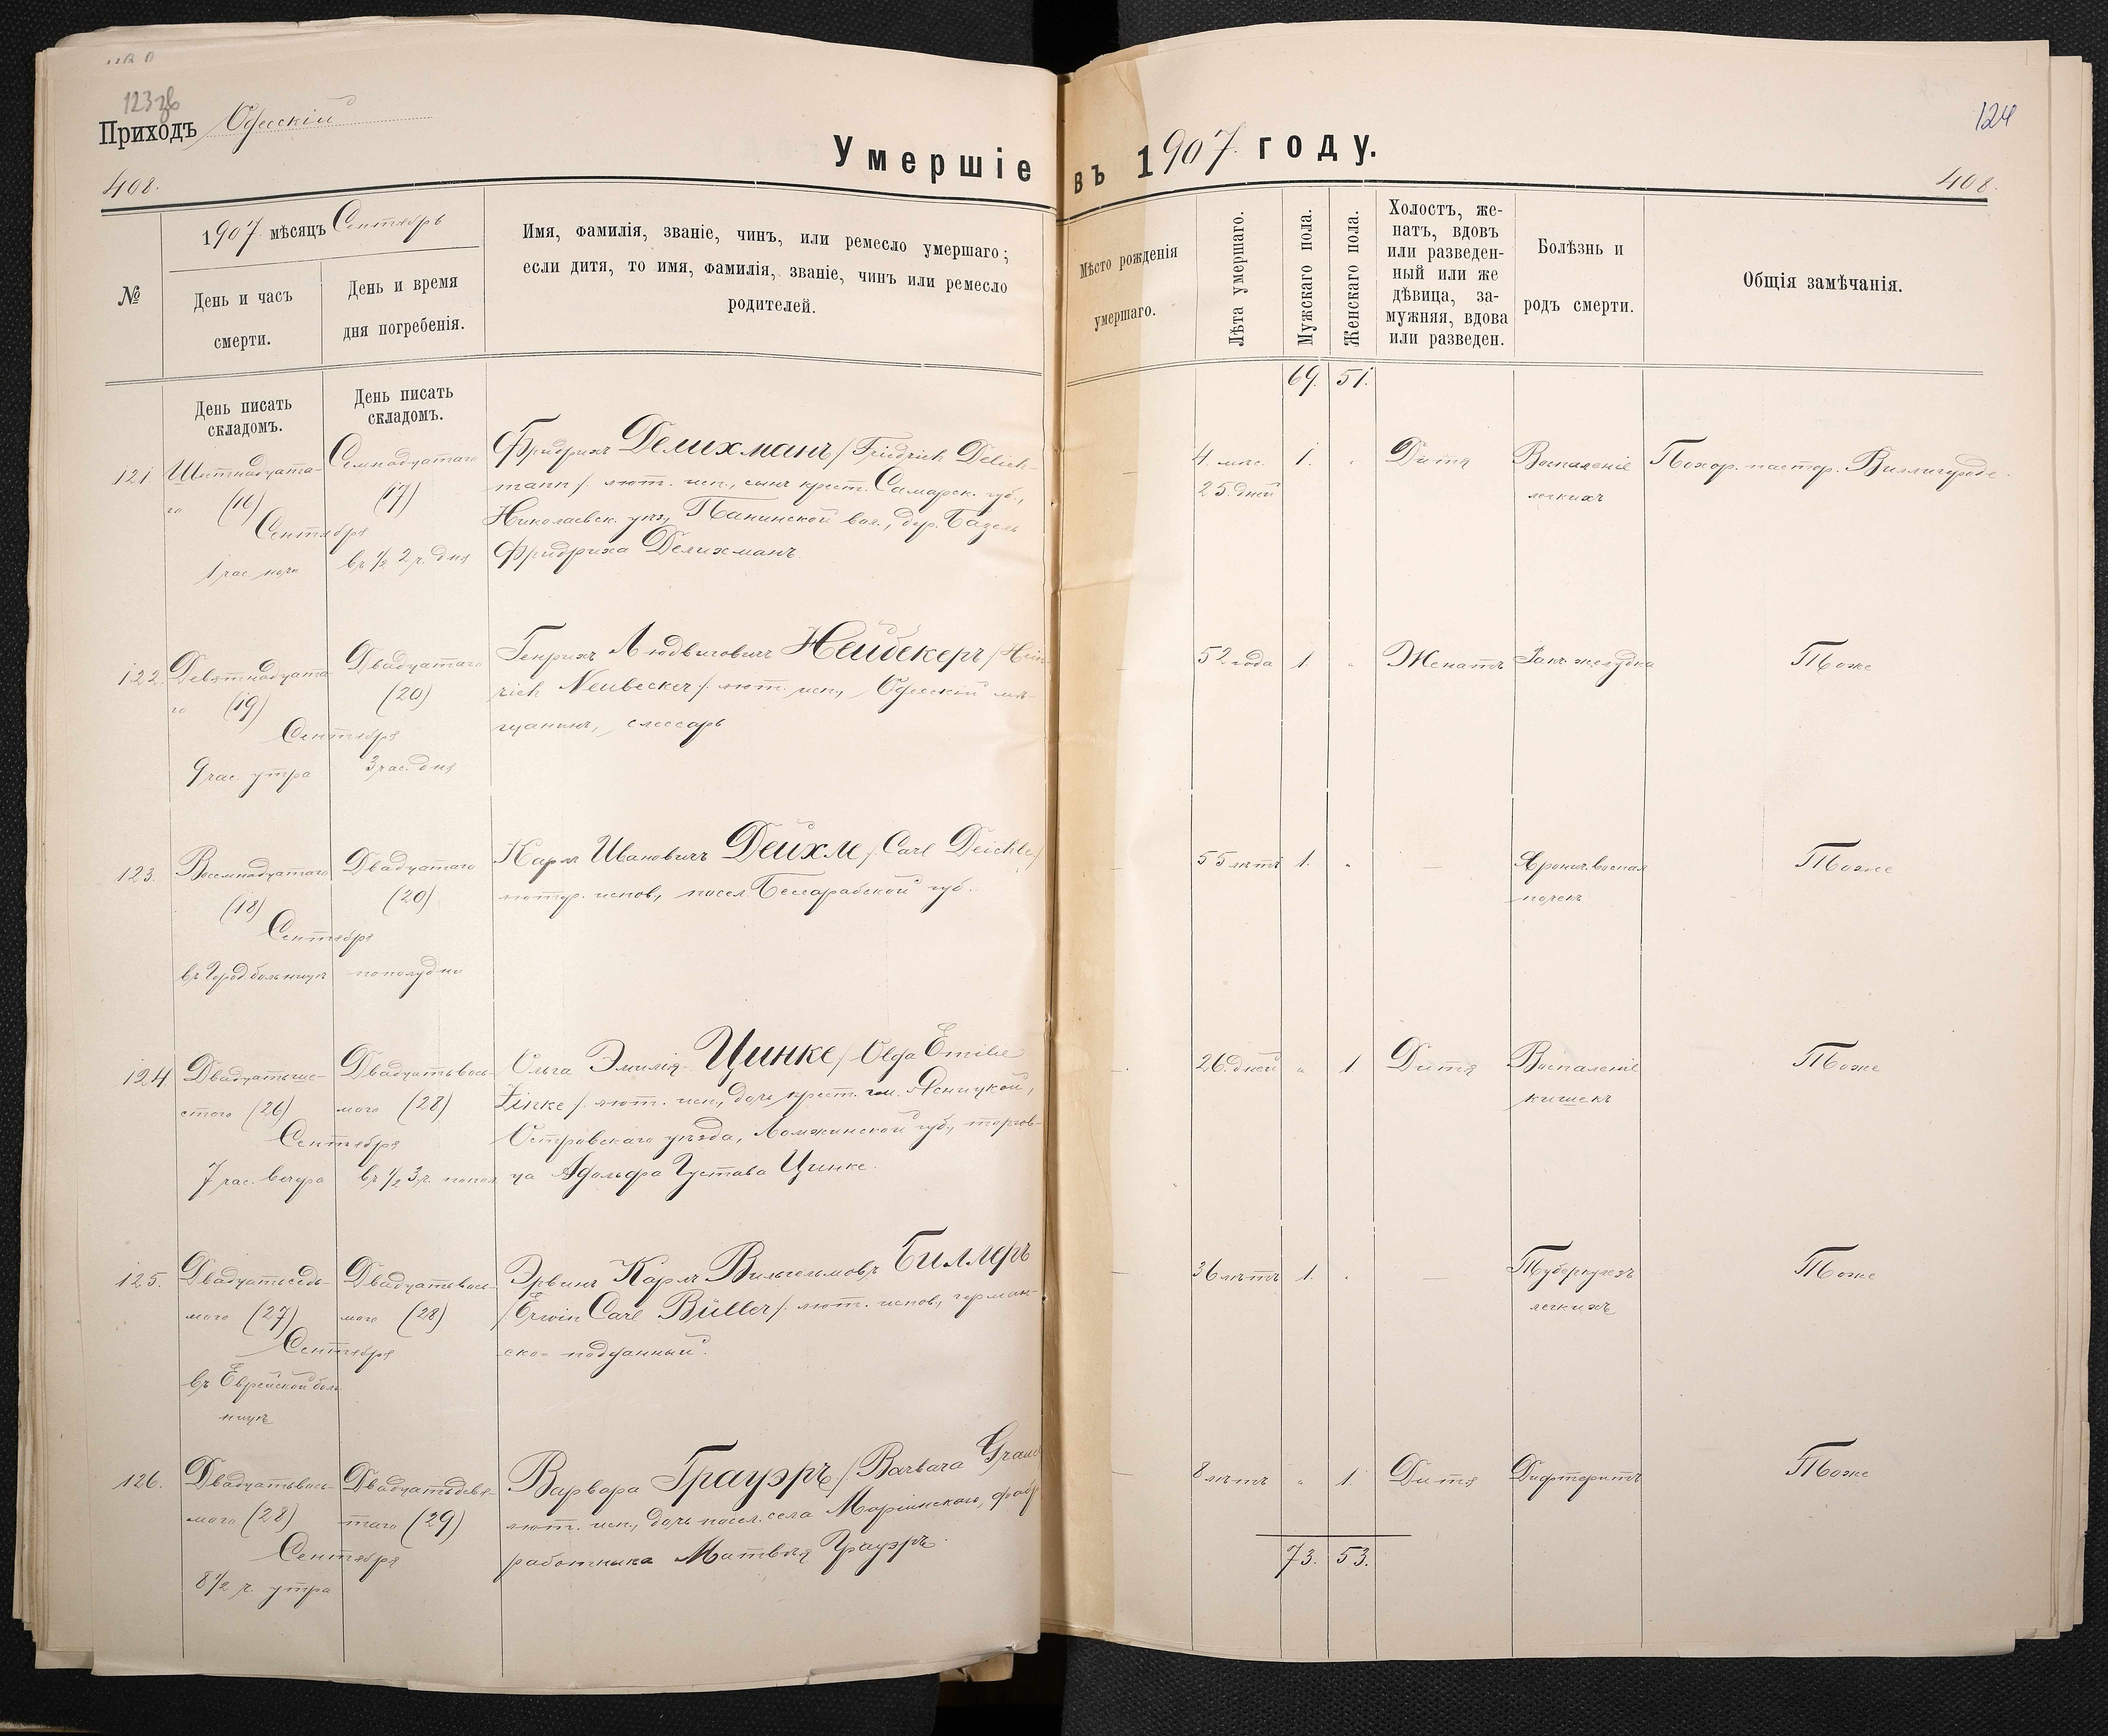 123 зв
Приходъ Одесскій
124
Умершіе въ 1907 году.
408.
408.
№
1907 мѣсяцъ Сентябрь
День и часъ смерти.
День и время дня погребенія.
Имя, фамилія, званіе, чинъ, или ремесло умершаго;
если дитя, то имя, фамилія, званіе, чинъ или ремесло
родителей.
Мѣсто рожденія
умершаго.
Лѣта умершаго.
Мужскаго пола.
Женскаго пола.
Холостъ, же-
натъ, вдовъ
или разведен-
ный или же
дѣвица, за-
мужняя, вдова
или разведен.
Болѣзнь и
родъ смерти.
Общія замѣчанія.
День писать
складомъ.
День писать
складомъ.
69. 51.
121.
Шестнадцата-
го (16)
Сентября
1 час. ночи
Семнадцатаго
(17)
въ ½ 2 ч. дня
Фридрихъ Делихманъ /Friedrich Delich-
mann/. лют. исп., сынъ крест. Самарск. губ.,
Николаевск. уѣз., Панинской вол., дер. Базель
Фридриха Делихманъ
4. мѣс.
25. дней
1.
Дитя
Воспаленіе
легкихъ
Похор. пастор. Виллигероде.
122.
Девятнадцата
го (19)
Сентября
9 час. утра
Двадцатаго
(20)
3 час. дня
Генрихъ Людвиговичъ Нейбекеръ /Hein-
rich Neubecker/. лют. исп., Одесскій мѣ-
щанинъ, слесарь
52 года
1.
Женатъ
Ракъ желудка
Тоже
123.
Восемнадцатаго
(18)
Сентября
въ Город. больницѣ
Двадцатаго
(20)
пополудни
Карлъ Ивановичъ Дейхле /Carl Deichle/
лютер. испов., посел. Бессарабской губ.
55 лѣтъ
1.
—
Хронич. воспал
почекъ
Тоже
124
Двадцатьше-
стого (26)
Сентября
7 час. вечера
Двадцатьвось-
мого (28)
въ ½ 3 ч. попол
Ольга Эмилія Цинке /Olga Emilie
Zinke/. лют. исп., дочь крест. гм. Ясницкой,
Островскаго уѣзда, Ломжинской губ., торгов-
ца Адольфа Густава Цинке.
26. дней
1.
Дитя
Воспаленіе
кишекъ
Тоже
125.
Двадцатьседь-
мого (27)
Сентября
въ Еврейской боль
ницѣ
Двадцатьвось-
мого (28)
Эрвинъ Карлъ Вильгельмовъ Биллеръ
/Erwin Carl Büller/. лют. испов., герман-
ско-подданный.
36 лѣтъ
1.
—
Туберкулезъ
легкихъ
Тоже
126.
Двадцатьвось-
мого (28)
Сентября
8 ½ ч. утра
Двадцатьдевя-
таго (29)
Варвара Грауэръ /Barbara Graue
лют. исп., дочь посел. села Маріинскаго, фабр
работника Матвѣя Грауэръ.
8 лѣтъ
1.
Дитя
Дифтеритъ
Тоже
73. 53.